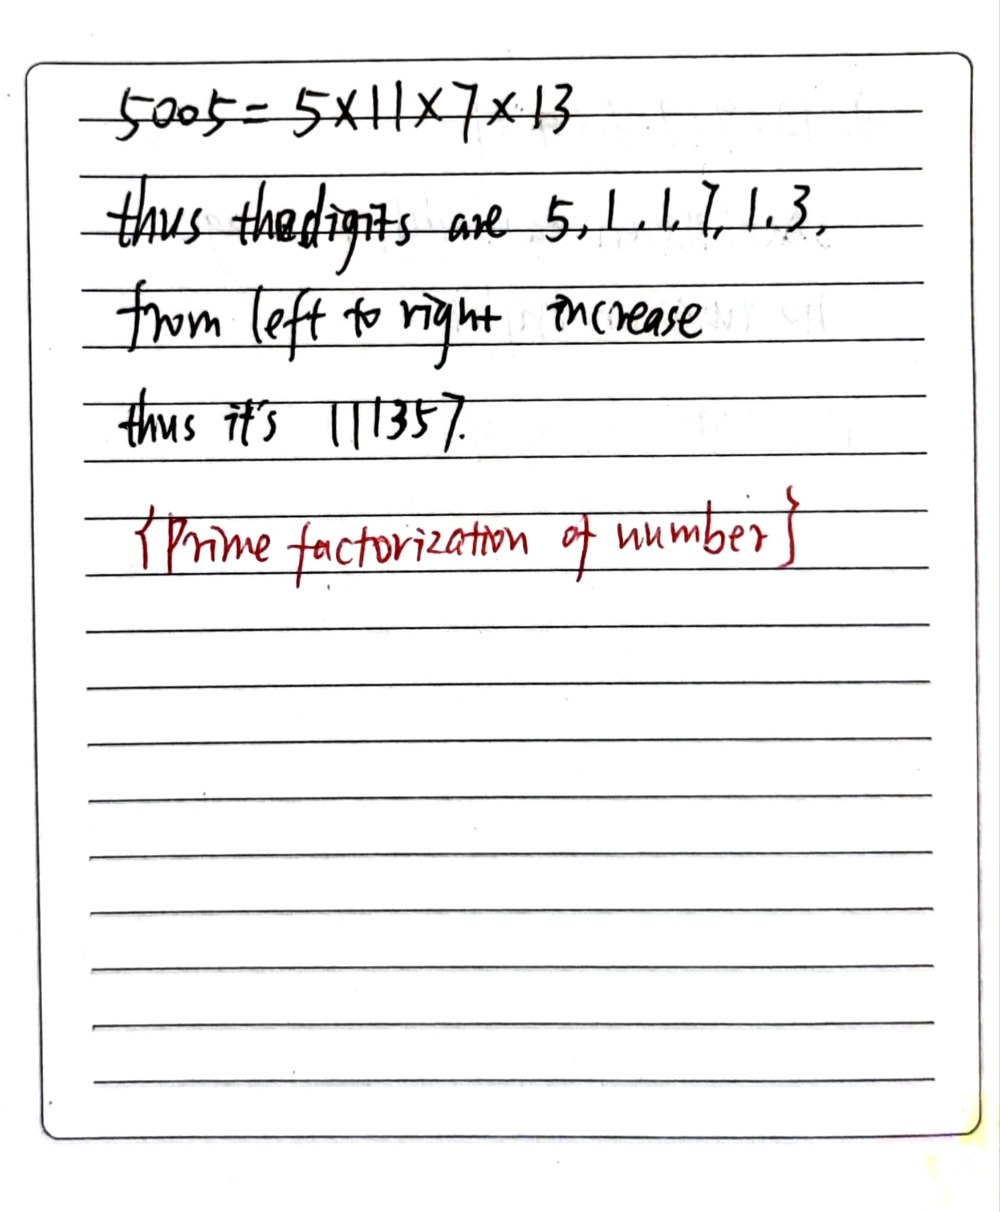 5005 = 5×11×7×13
thus the digits are 5, 1, 1, 7, 1, 3.
from left to right increase
thus it's 111357.
{Prime factorization of number}